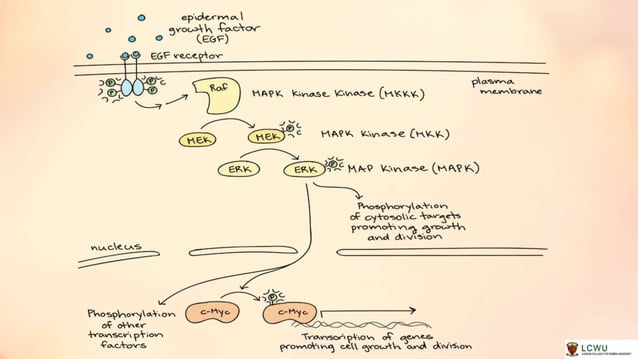 epidermal
growth factor
(EGF)
EGF receptor
P P
P P
plasma
membrane
Raf
MAPK Kinase Kinase (MKKK)
MEK
MEK
P
MAPK Kinase (MKK)
ERK
ERK
P
MAP Kinase (MAPK)
Phosphorylation
of cytosolic targets
promoting growth
and division
nucleus
Phosphorylation
of other
transcription
factors
c-Myc
P
c-Myc
Transcription of genes
promoting cell growth and division
LCWU
LAHORE COLLEGE FOR WOMEN UNIVERSITY